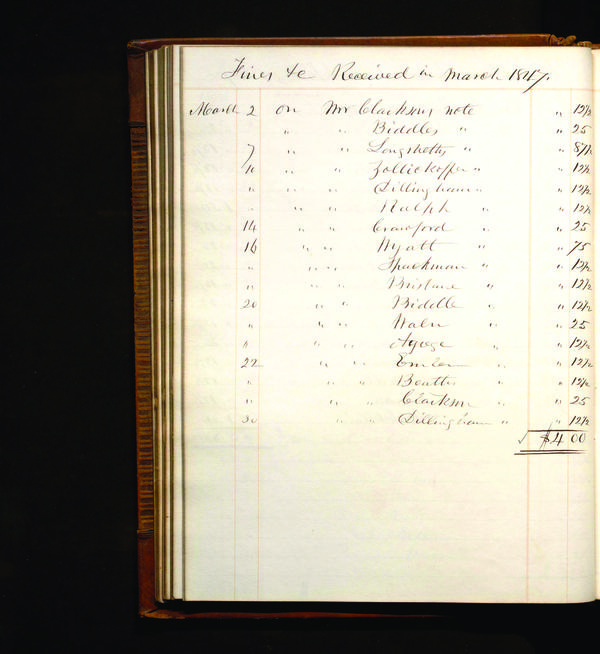 Fines &c Received in March 1847.
March 2 on Mr Clarksons note " 12½
" " Biddles " " 25
7 " " Longstreths " " 87½
10 " " Zollickoffer " " 12½
" " " Dillingham " " 12½
" " " Ralph " " 12½
14 " " Crawford " " 25
16 " " Wyatt " " 75
" " " Spackman " " 12½
" " " Brisbane " " 12½
20 " " Biddle " " 12½
" " " Waln " " 25
" " " " " 12½
22 " " Emlen " " 12½
" " " Beattie " " 12½
" " " Clarkson " " 25
30 " " Dillingham " " 12½
√ $4 00